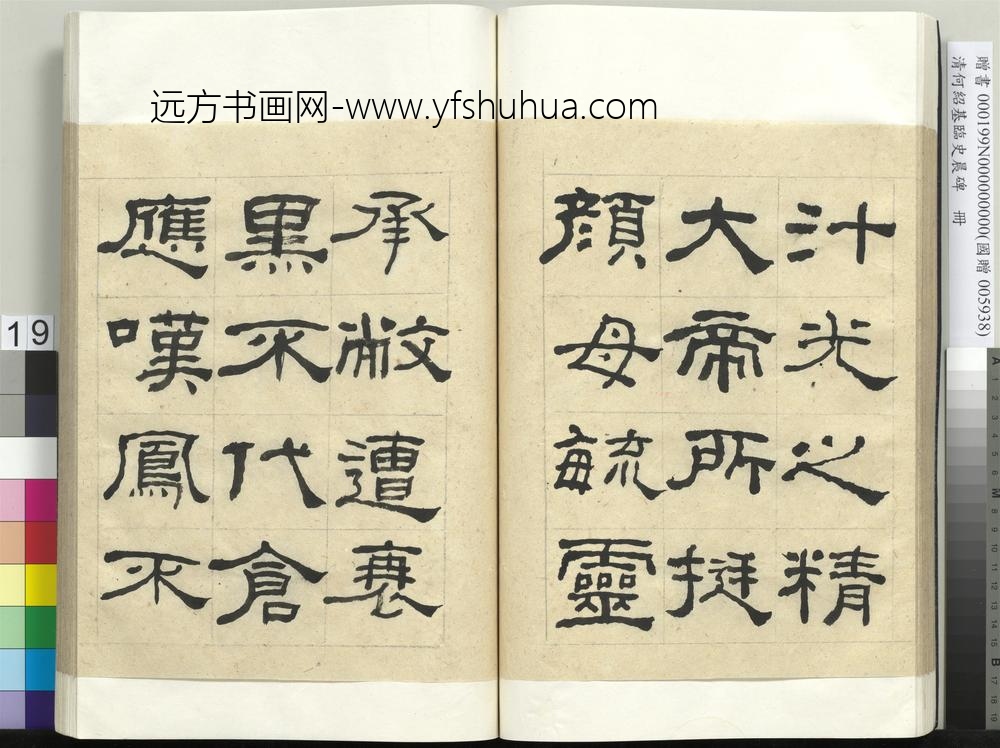 远方书画网-www.yfshuhua.com
汁光之精
大帝所挺
顏母毓靈
承敝遭衰
黑不代倉
應嘆鳳不
贈書 000199N000000000(國贈 005938)
清何紹基臨史晨碑 冊
19